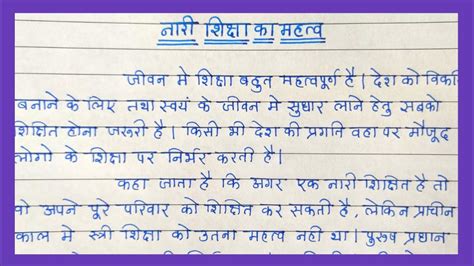 नारी शिक्षा का महत्व
जीवन मे शिक्षा बहुत महत्वपूर्ण है। देश को विकसि
बनाने के लिए तथा स्वयं के जीवन मे सुधार लाने हेतु सबको
शिक्षित होना जरूरी है। किसी भी देश की प्रगति वहा पर मौजूद
लोगो के शिक्षा पर निर्भर करती है।
कहा जाता है कि अगर एक नारी शिक्षित है तो
वो अपने पूरे परिवार को शिक्षित कर सकती है, लेकिन प्राचीन
काल मे स्त्री शिक्षा को उतना महत्व नही था। पुरुष प्रधान